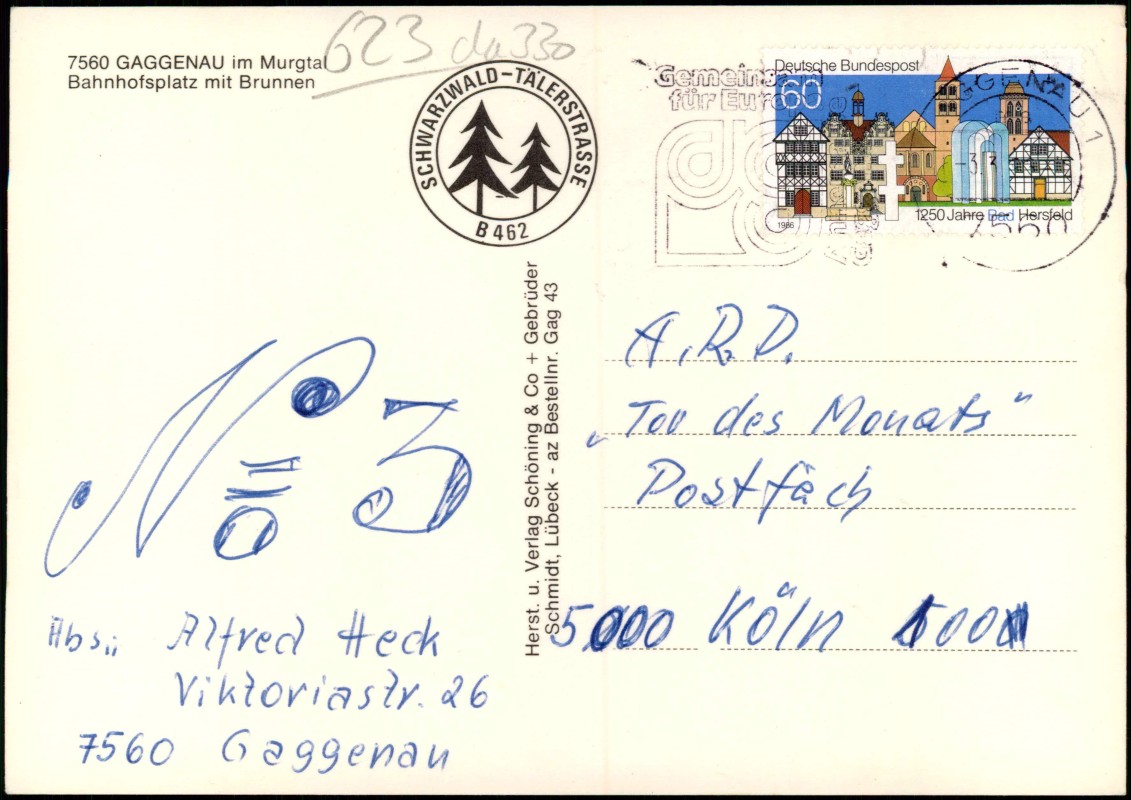 7560 GAGGENAU im Murgtal
Bahnhofsplatz mit Brunnen
623 da 330
SCHWARZWALD-TÄLERSTRASSE
B 462
für Euro
Deutsche Bundespost
60
1250 Jahre Bad Hersfeld
1986
GGENAU 1
7560
Herst. u. Verlag Schöning & Co + Gebrüder
Schmidt, Lübeck - az Bestellnr. Gag 43
A.R.D.
„Tor des Monats"
Postfach
5000 Köln 5000
No 3
Abs.: Alfred Heck
Viktoriastr. 26
7560 Gaggenau